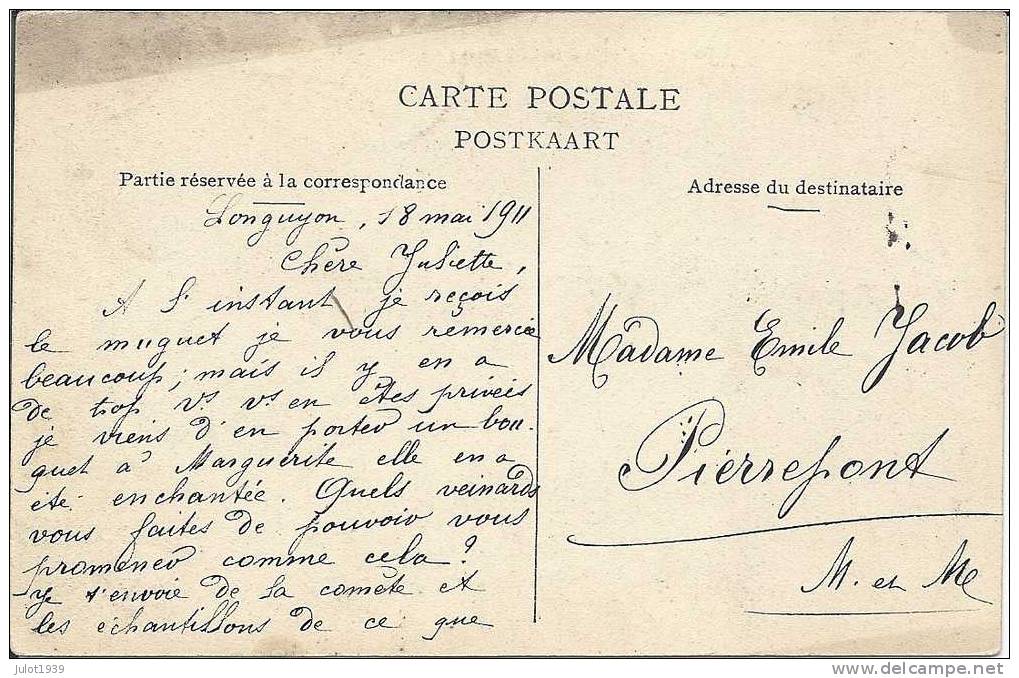 CARTE POSTALE
POSTKAART
Partie réservée à la correspondance
Adresse du destinataire
Longuyon, 18 mai 1911
Chère Juliette,
A l'instant je reçois
le muguet je vous remercie
beaucoup; mais il y en a
de trop vs vs en êtes privées
je viens d'en porter un bou-
quet à Marguerite elle en a
été enchantée. Quels veinards
vous faites de pouvoir vous
promener comme cela?
t'envoie de la comète et
les échantillons de ce que
Madame Emile Jacob
Pierrepont
M. et Me
julot1939
delcampe.net